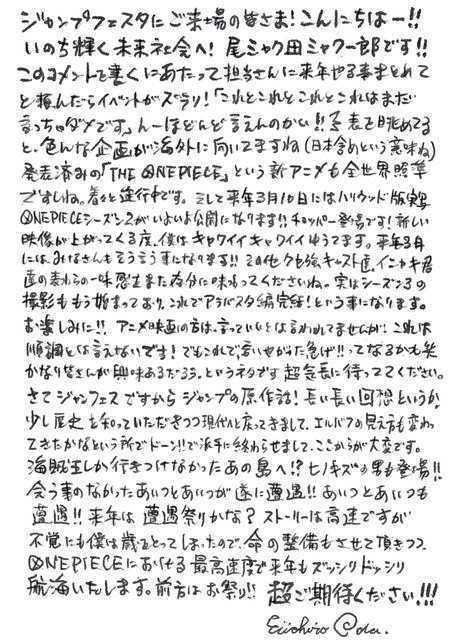 ジャンプフェスタにご来場の皆さま!こんにちはー!!
いのち輝く未来社会へ!尾ミャク田ミャクー郎です!!
このコメントを書くにあたって担当さんに来年やる事まとめて
と頼んだらイベントがズラリ!「これとこれとこれとこれはまだ
言っちゃダメです」んーほとんど言えんのかい!!予表を眺めてる
と、色んな企画が海外に向いてますね(日本含めという意味ね)
発表済みの「THE ONE PIECE」という新アニメも全世界照準
ですしね。着々と進行中です。そして来年3月10日にはハリウッド版実写
ONE PIECEシーズン2がいよいよ公開になります!!チョッパー登場です!新しい
映像が上がってくる度、僕はキャワイイキャワイイゆうてます。来年3月
にはみなさんもそう言う事になります!!その他クセ強キャスト達、イニャキ君
達の麦わらの一味
思うまた存分に味わってくださいね。実はシーズン3の
撮影ももう始まっており、これでアラバスタ編完結!という事になります。
お楽しみに!!アニメ映画の方は、言っていいとは言われてませんが、これは
順調とは言えないです!でもこれで言いやがった急げ!!ってなるかも笑
かなり皆さんが興味あるだろう、というネタです 超気長に待っててください。
さてジャンフェスですからジャンプの原作話!長い長い回想というか
少し歴史を知っていただきつつ現代へと戻ってきまして、エルバフの見え方も変わっ
てきたかなという所でドーン!!で派手に終わらせまして、ここからが大変です。
海賊王しか行きつけなかったあの島へ!?ヒノキズの男も登場!!
会う事のなかったあいつとあいつが遂に遭遇!!あいつとあいつも
遭遇!!来年は遭遇祭りかな?ストーリーは高速ですが
不覚にも僕は歳をとってしまったので、命の整備もさせて頂きつつ
ONE PIECEにおける最高速度で来年もズッシリドッシリ
航海いたします。前方はお祭り!!超ご期待ください!!!
Eiichiro Oda.